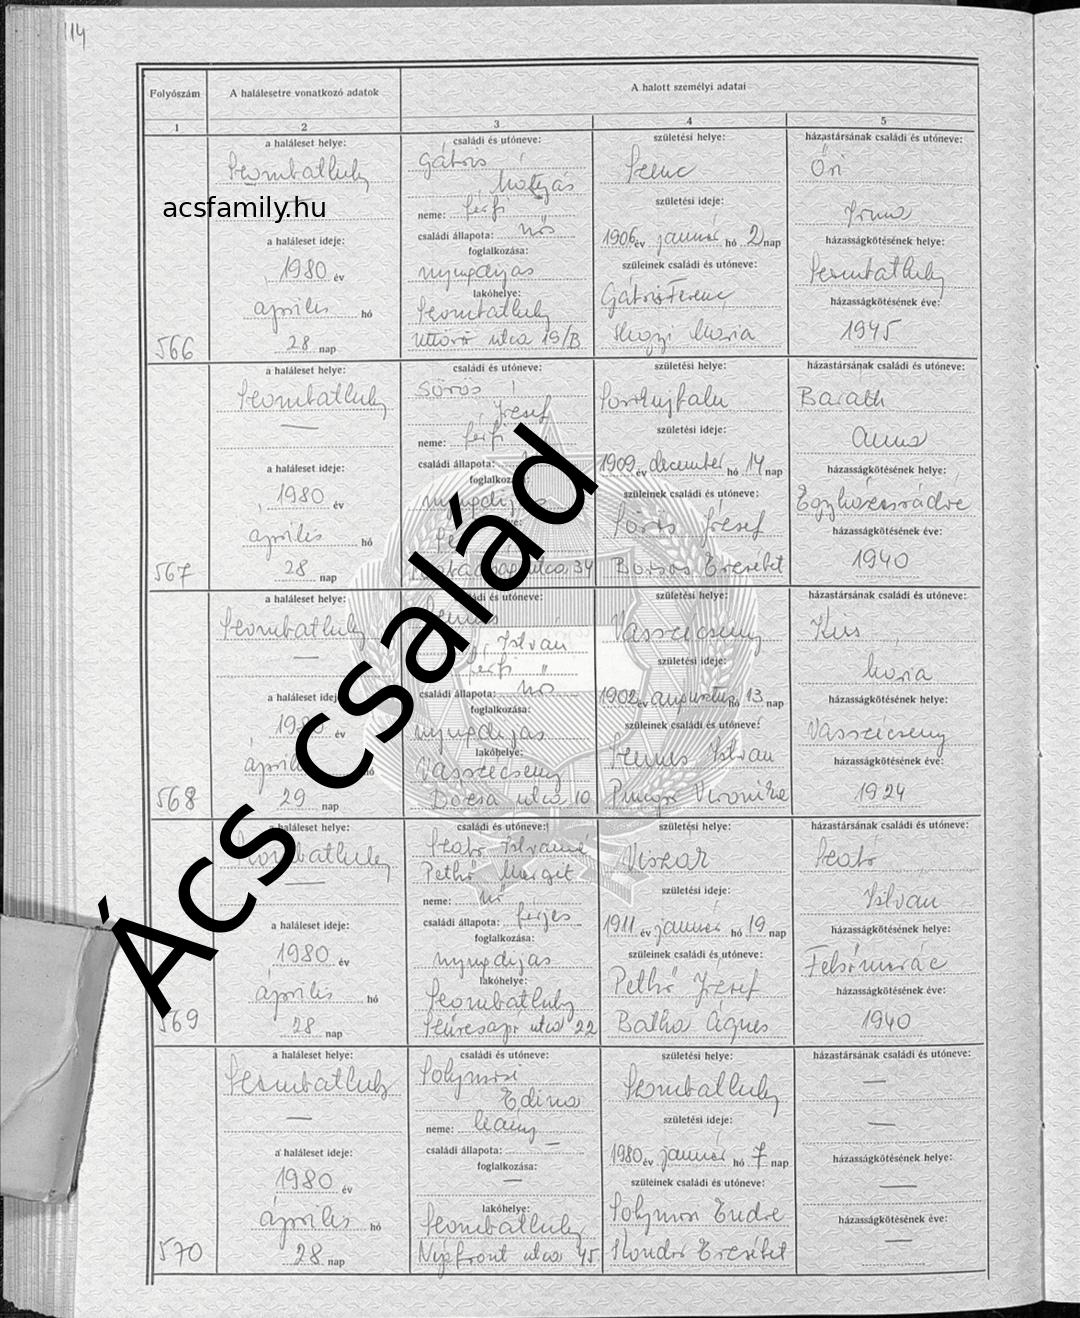 114
Folyószám
A halálesetre vonatkozó adatok
A halott személyi adatai
1
2
3
4
5
566
a haláleset helye:
Szombathely
acsfamily.hu
a haláleset ideje:
1980 év
április hó
28 nap
családi és utóneve:
Gátos
Mátyás
neme: férfi
családi állapota: nős
foglalkozása:
nyugdíjas
lakóhelye:
Szombathely
Úttörő utca 19/B
születési helye:
Szenc
születési ideje:
1906 év január hó 2 nap
szüleinek családi és utóneve:
Gátos Ferenc
Mária
házastársának családi és utóneve:
Őri
Irma
házasságkötésének helye:
Szombathely
házasságkötésének éve:
1945
567
a haláleset helye:
Szombathely
—
a haláleset ideje:
1980 év
április hó
28 nap
családi és utóneve:
Sörös
József
neme: férfi
családi állapota:
foglalkozása:
nyugdíjas
utca 34
születési helye:
születési ideje:
1909 év december hó 14 nap
szüleinek családi és utóneve:
Sörös József
Borsos Erzsébet
házastársának családi és utóneve:
Baráth
Anna
házasságkötésének helye:
Egyházasrádóc
házasságkötésének éve:
1940
568
a haláleset helye:
Szombathely
—
a haláleset ideje:
1980 év
április hó
29 nap
családi és utóneve:
Nemes
István
férfi "
családi állapota: nős
foglalkozása:
nyugdíjas
lakóhelye:
Vasszécseny
Dózsa utca 10
születési helye:
Vasszécseny
születési ideje:
1902 év augusztus hó 13 nap
szüleinek családi és utóneve:
Nemes István
Veronika
házastársának családi és utóneve:
Kiss
Mária
házasságkötésének helye:
Vasszécseny
házasságkötésének éve:
1924
569
a haláleset helye:
Szombathely
—
a haláleset ideje:
1980 év
április hó
28 nap
családi és utóneve:
Szabó Istvánné
Pethő Margit
neme: nő
családi állapota: férjes
foglalkozása:
nyugdíjas
lakóhelye:
Szombathely
utca 22
születési helye:
Viszák
születési ideje:
1911 év január hó 19 nap
szüleinek családi és utóneve:
Pethő József
Batha Ágnes
házastársának családi és utóneve:
Szabó
István
házasságkötésének helye:
Felsőmarác
házasságkötésének éve:
1940
570
a haláleset helye:
Szombathely
—
a haláleset ideje:
1980 év
április hó
28 nap
családi és utóneve:
Solymosi
Edina
neme: leány
családi állapota: —
foglalkozása:
—
lakóhelye:
Szombathely
Népfront utca 45
születési helye:
Szombathely
születési ideje:
1980 év január hó 7 nap
szüleinek családi és utóneve:
Solymosi Endre
Kondor Erzsébet
házastársának családi és utóneve:
—
—
házasságkötésének helye:
—
házasságkötésének éve:
—
Ács család